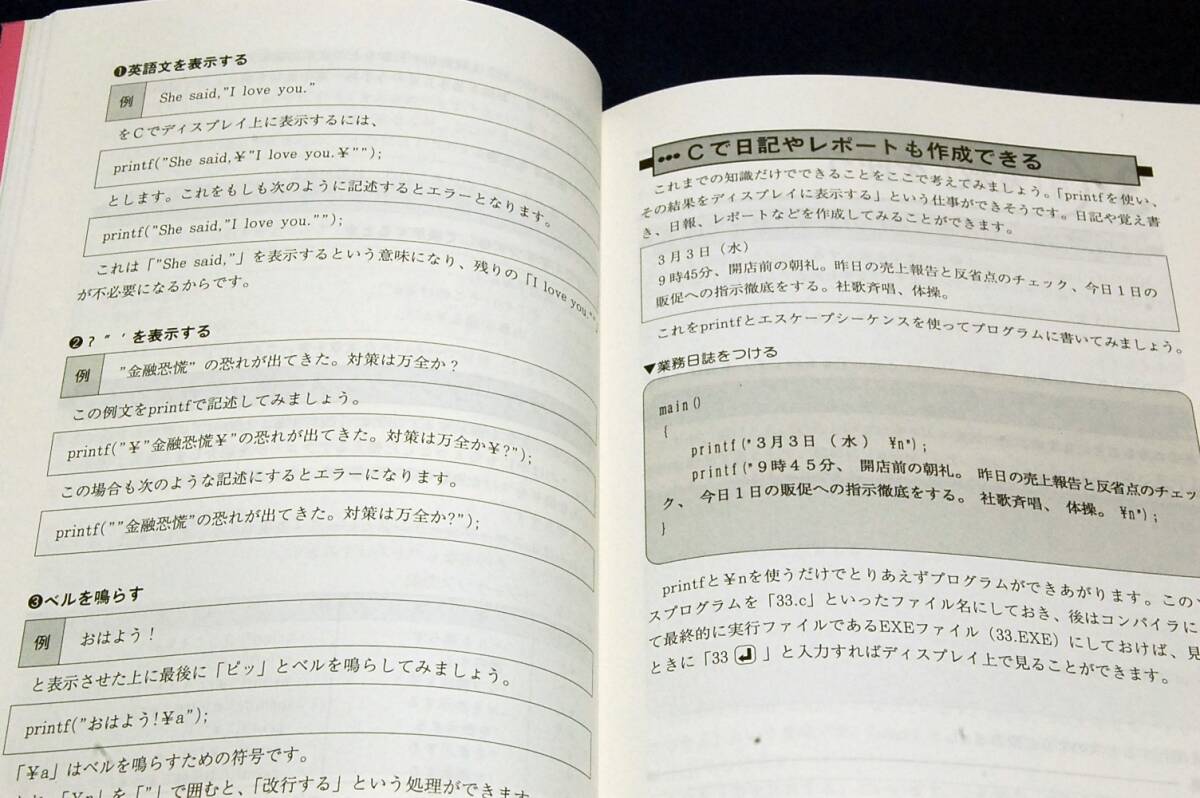 ❶英語文を表示する
例 She said,"I love you."
をCでディスプレイ上に表示するには、
printf("She said,¥"I love you.¥"");
とします。これをもしも次のように記述するとエラーとなります。
printf("She said,"I love you."");
これは「"She said,"」を表示するという意味になり、残りの「I love you.""」
が不必要になるからです。
❷? " ' を表示する
例 "金融恐慌" の恐れが出てきた。対策は万全か?
この例文をprintfで記述してみましょう。
printf("¥"金融恐慌¥"の恐れが出てきた。対策は万全か¥?");
この場合も次のような記述にするとエラーになります。
printf(""金融恐慌"の恐れが出てきた。対策は万全か?");
❸ベルを鳴らす
例 おはよう!
と表示させた上に最後に「ピッ」とベルを鳴らしてみましょう。
printf("おはよう!¥a");
「¥a」はベルを鳴らすための符号です。
「¥n」を「"」で囲むと、「改行する」という処理ができます
●●● Cで日記やレポートも作成できる
これまでの知識だけでできることをここで考えてみましょう。「printfを使い、
その結果をディスプレイに表示する」という仕事ができそうです。日記や覚え書
き、日報、レポートなどを作成してみることができます。
3月3日(水)
9時45分、開店前の朝礼。昨日の売上報告と反省点のチェック、今日1日の
販促への指示徹底をする。社歌斉唱、体操。
これをprintfとエスケープシーケンスを使ってプログラムに書いてみましょう。
▼業務日誌をつける
main()
{
printf("3月3日(水) ¥n");
printf("9時45分、開店前の朝礼。昨日の売上報告と反省点のチェッ
ク、今日1日の販促への指示徹底をする。社歌斉唱、体操。¥n");
}
printfと¥nを使うだけでとりあえずプログラムができあがります。この
スプログラムを「33.c」といったファイル名にしておき、後はコンパイラに
て最終的に実行ファイルであるEXEファイル(33.EXE)にしておけば、見
ときに「33 ↵ 」と入力すればディスプレイ上で見ることができます。